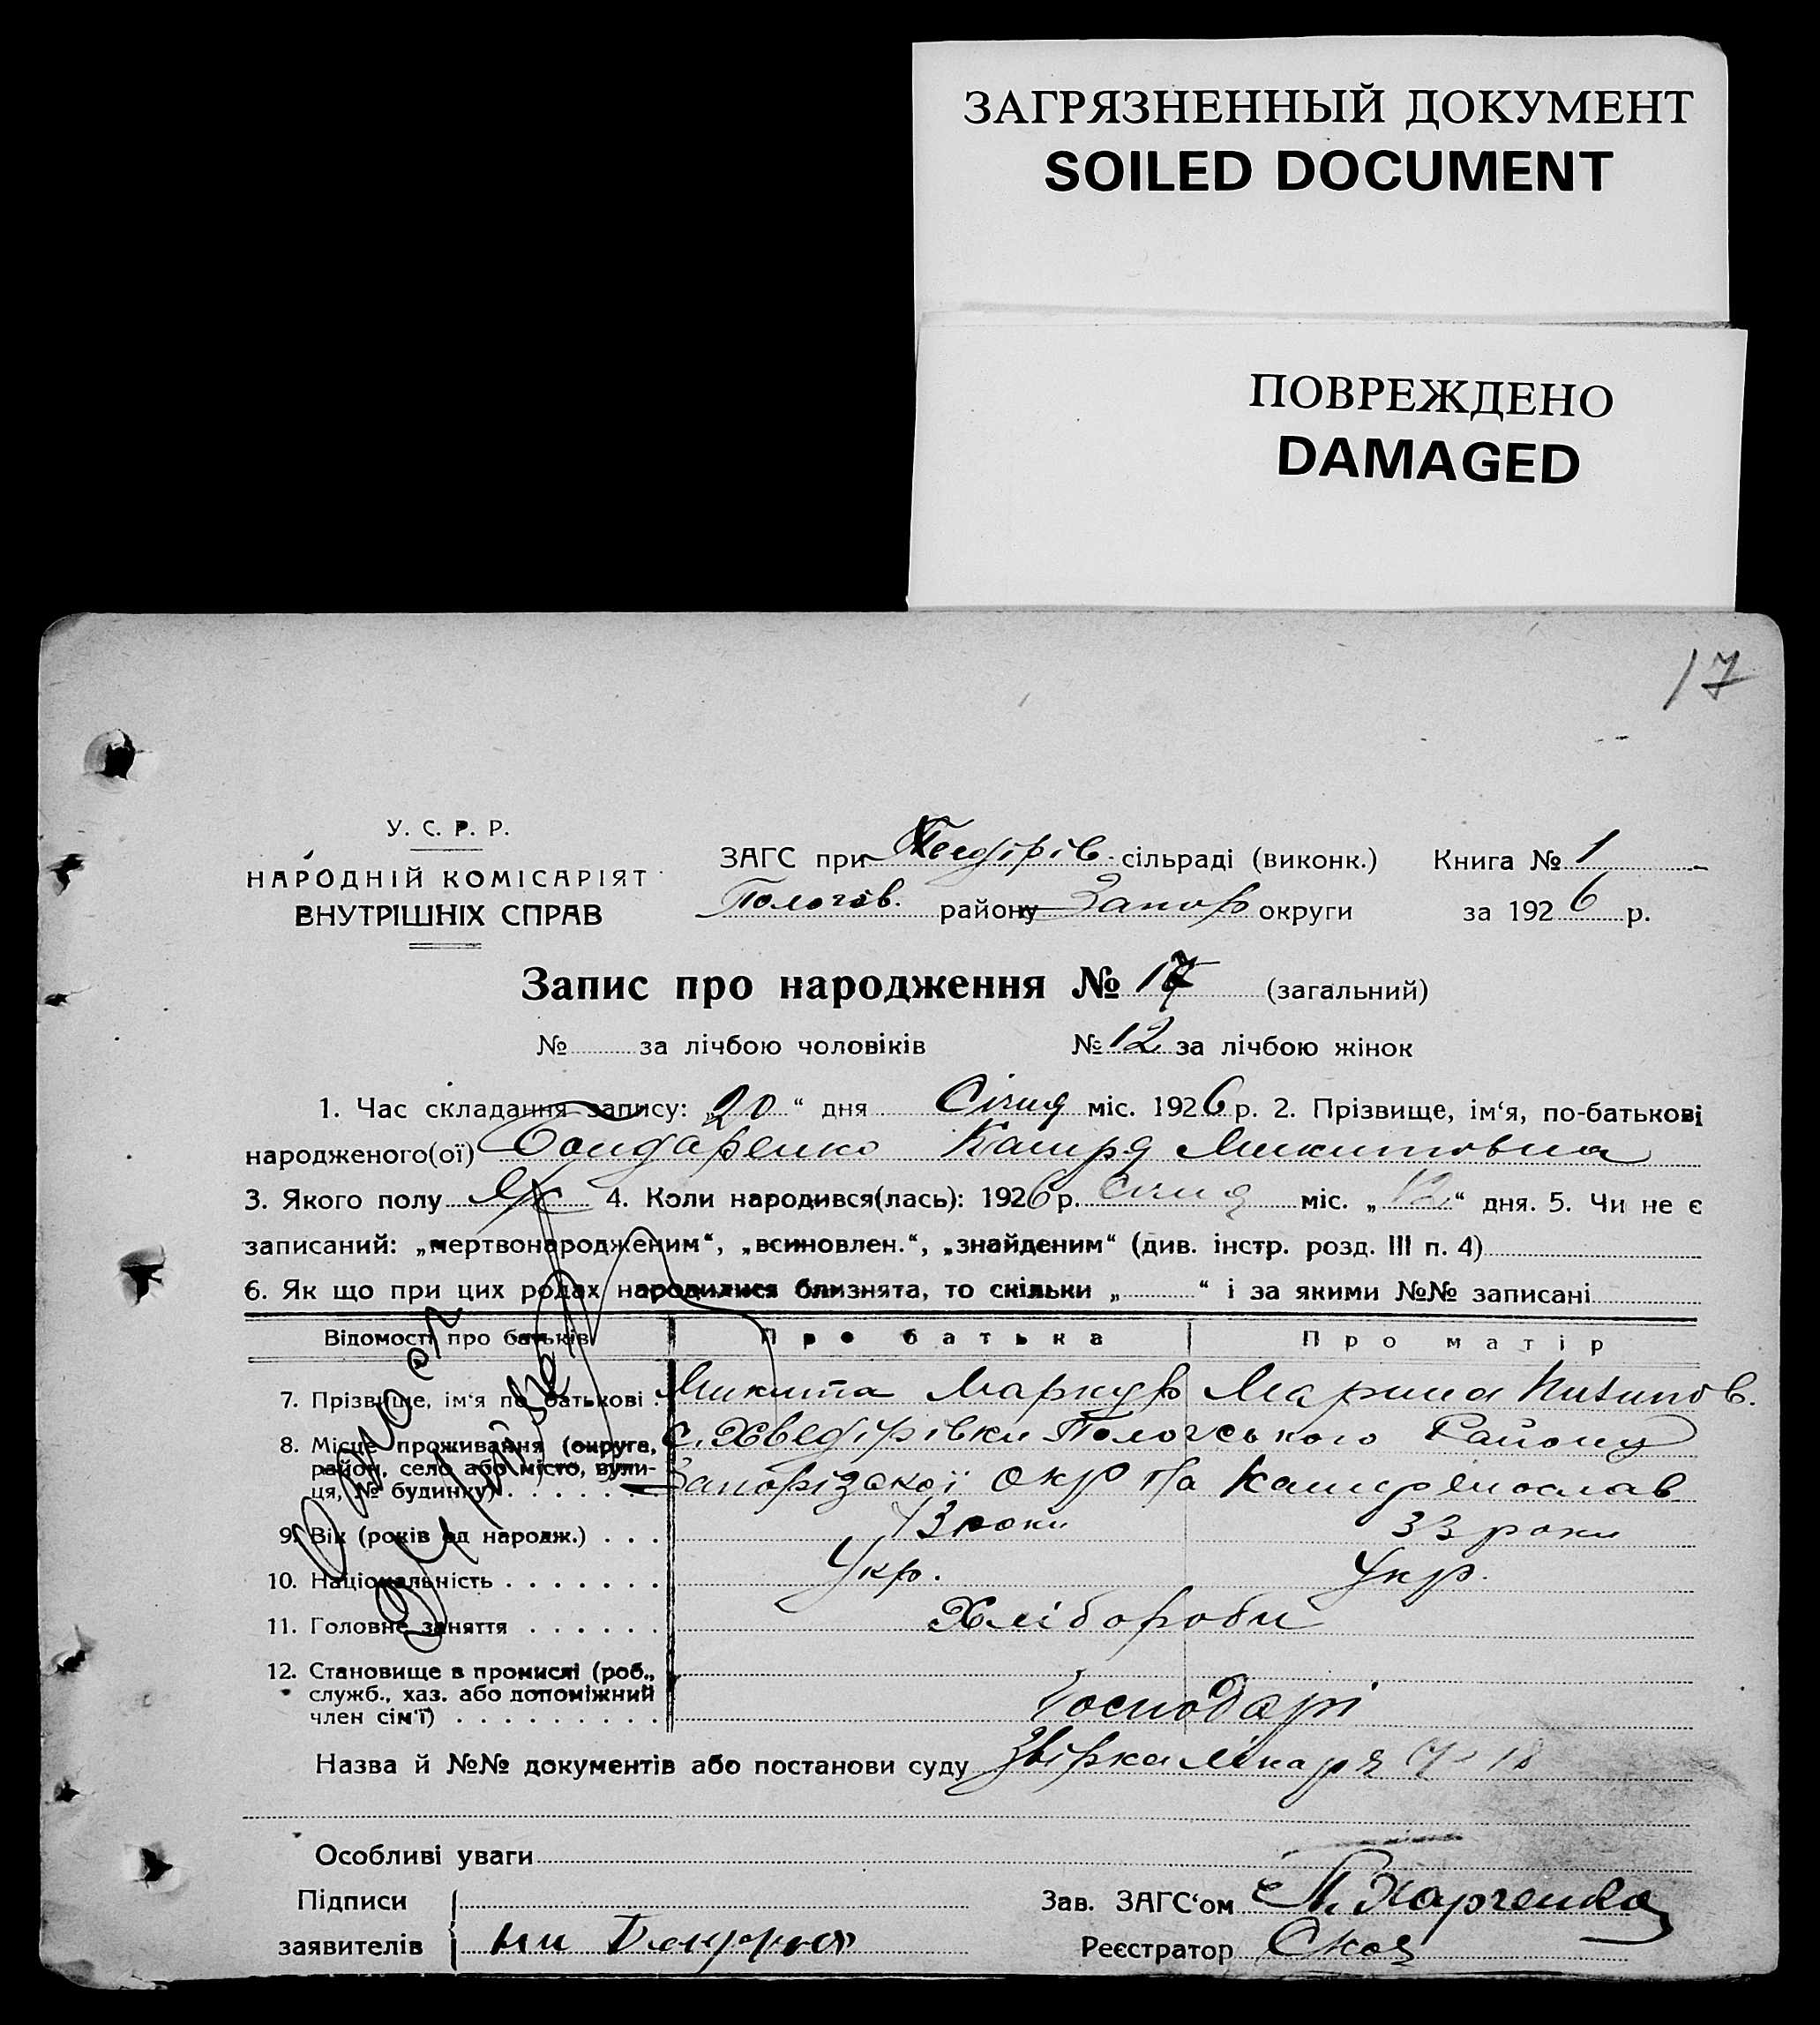 ЗАГРЯЗНЕННЫЙ ДОКУМЕНТ
SOILED DOCUMENT
ПОВРЕЖДЕНО
DAMAGED
17
У. С. Р. Р.
НАРОДНІЙ КОМІСАРІЯТ
ВНУТРІШНІХ СПРАВ
ЗАГС при сільраді (виконк.) Книга № 1
Пологів. району Запор округи за 1926 р.
Запис про народження № 17 (загальний)
№ за лічбою чоловіків № 12 за лічбою жінок
1. Час складання запису: „20“ дня Січня міс. 1926 р. 2. Прізвище, ім‘я, по-батькові
народженого(ої) Бондаренко Катря Микитовна
3. Якого полу Ж 4. Коли народився(лась): 1926 р. січня міс. „12“ дня. 5. Чи не є
записаний: „мертвонародженим“, „всиновлен.“, „знайденим“ (див. інстр. розд. III п. 4)
6. Як що при цих родах народилися близнята, то скільки „ “ і за якими №№ записані
Відомості про батьків Про батька Про матір
7. Прізвище, ім‘я по батькові Микита Маркур Марина
8. Місце проживання (округа, с. Хведірівки Пологського Району
район, село або місто, вули-
ця, № будинку) Запорізської окр
9. Вік (років од народж.) 43 роки 33 роки
10. Національність Укр. Укр.
11. Головне заняття Хлібороби
12. Становище в промислі (роб.,
служб., хаз. або допоміжний
член сім‘ї) Господарі
Назва й №№ документів або постанови суду лікаря 18
Особливі уваги
Підписи
заявителів
Зав. ЗАГС‘ом П. Харченко
Реєстратор